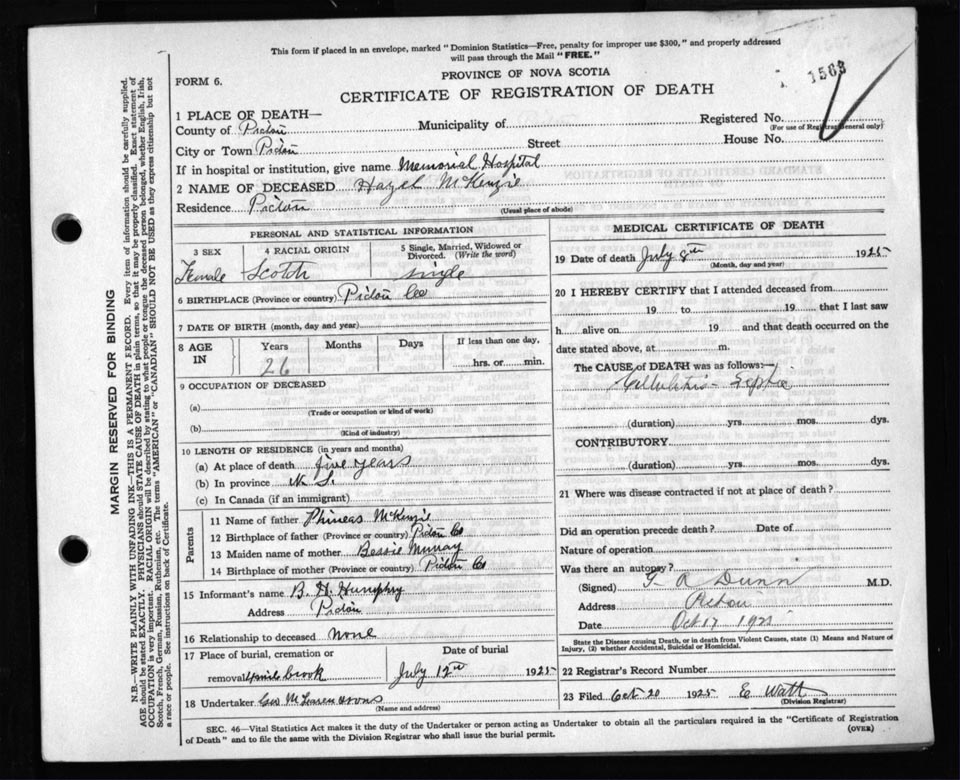 This form if placed in an envelope, marked "Dominion Statistics—Free, penalty for improper use $300," and properly addressed
will pass through the Mail "FREE."
FORM 6.
PROVINCE OF NOVA SCOTIA
1563
CERTIFICATE OF REGISTRATION OF DEATH
1 PLACE OF DEATH—
County of Pictou Municipality of Registered No.
(For use of Registrar General only)
City or Town Pictou Street House No.
If in hospital or institution, give name Memorial Hospital
2 NAME OF DECEASED Hazel McKenzie
Residence Pictou
(Usual place of abode)
PERSONAL AND STATISTICAL INFORMATION
3 SEX 4 RACIAL ORIGIN 5 Single, Married, Widowed or
Divorced. (Write the word)
Female Scotch single
6 BIRTHPLACE (Province or country) Pictou Co
7 DATE OF BIRTH (month, day and year)
8 AGE IN Years Months Days If less than one day,
26 hrs. or min.
9 OCCUPATION OF DECEASED
(a)
(Trade or occupation or kind of work)
(b)
(Kind of industry)
10 LENGTH OF RESIDENCE (in years and months)
(a) At place of death five years
(b) In province N. S.
(c) In Canada (if an immigrant)
Parents
11 Name of father Phineas McKenzie
12 Birthplace of father (Province or country) Pictou Co
13 Maiden name of mother Bessie Murray
14 Birthplace of mother (Province or country) Pictou Co
15 Informant's name B. H. Humphry
Address Pictou
16 Relationship to deceased None
17 Place of burial, cremation or Date of burial
removal brook July 12th 1925
18 Undertaker Geo McLaren & Sons
(Name and address)
MEDICAL CERTIFICATE OF DEATH
19 Date of death July 8th 1925
(Month, day and year)
20 I HEREBY CERTIFY that I attended deceased from
19 to 19 that I last saw
h alive on 19 and that death occurred on
date stated above, at m.
The CAUSE of DEATH was as follows:—
Cellulitis Septic
(duration) yrs. mos. dys.
CONTRIBUTORY
(duration) yrs. mos. dys.
21 Where was disease contracted if not at place of death?
Did an operation precede death? Date of
Nature of operation
Was there an autopsy?
(Signed) A Dunn M.D.
Address Pictou
Date Oct 17 192
State the Disease causing Death, or in death from Violent Causes, state (1) Means and Nature of
Injury, (2) whether Accidental, Suicidal or Homicidal.
22 Registrar's Record Number
23 Filed Oct 20 1925 E Watt
(Division Registrar)
SEC. 46—Vital Statistics Act makes it the duty of the Undertaker or person acting as Undertaker to obtain all the particulars required in the "Certificate of Registration
of Death" and to file the same with the Division Registrar who shall issue the burial permit.
(OVER)
MARGIN RESERVED FOR BINDING
N.B.—WRITE PLAINLY WITH UNFADING INK—THIS IS A PERMANENT RECORD. Every item of information should be carefully supplied.
AGE should be stated EXACTLY. PHYSICIANS should STATE CAUSE OF DEATH in plain terms, so that it may be properly classified. Exact statement of
OCCUPATION is very important. RACIAL ORIGIN will be described by stating to what people or tongue the deceased person belonged, whether English, Irish,
Scotch, French, German, Russian, Ruthenian, etc. The terms "AMERICAN" or "CANADIAN" SHOULD NOT BE USED as they express citizenship but not
a race or people. See instructions on back of Certificate.